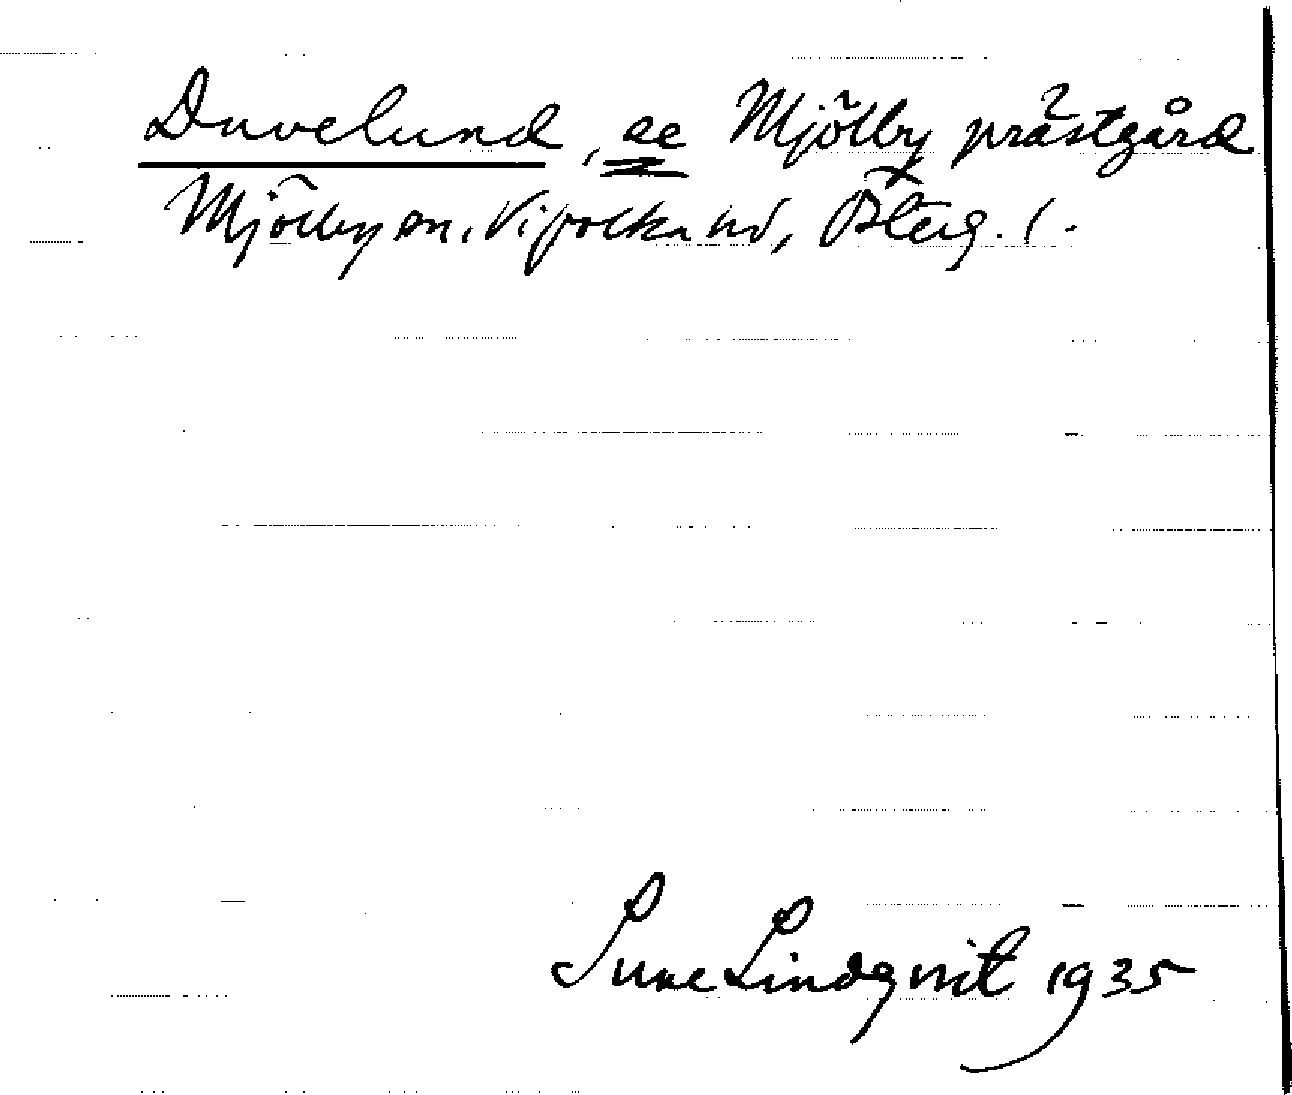 Duvelund, se Mjölby prästgård
Mjölby sn, Vifolka hd, Österg. l.
Sune Lindqvist 1935